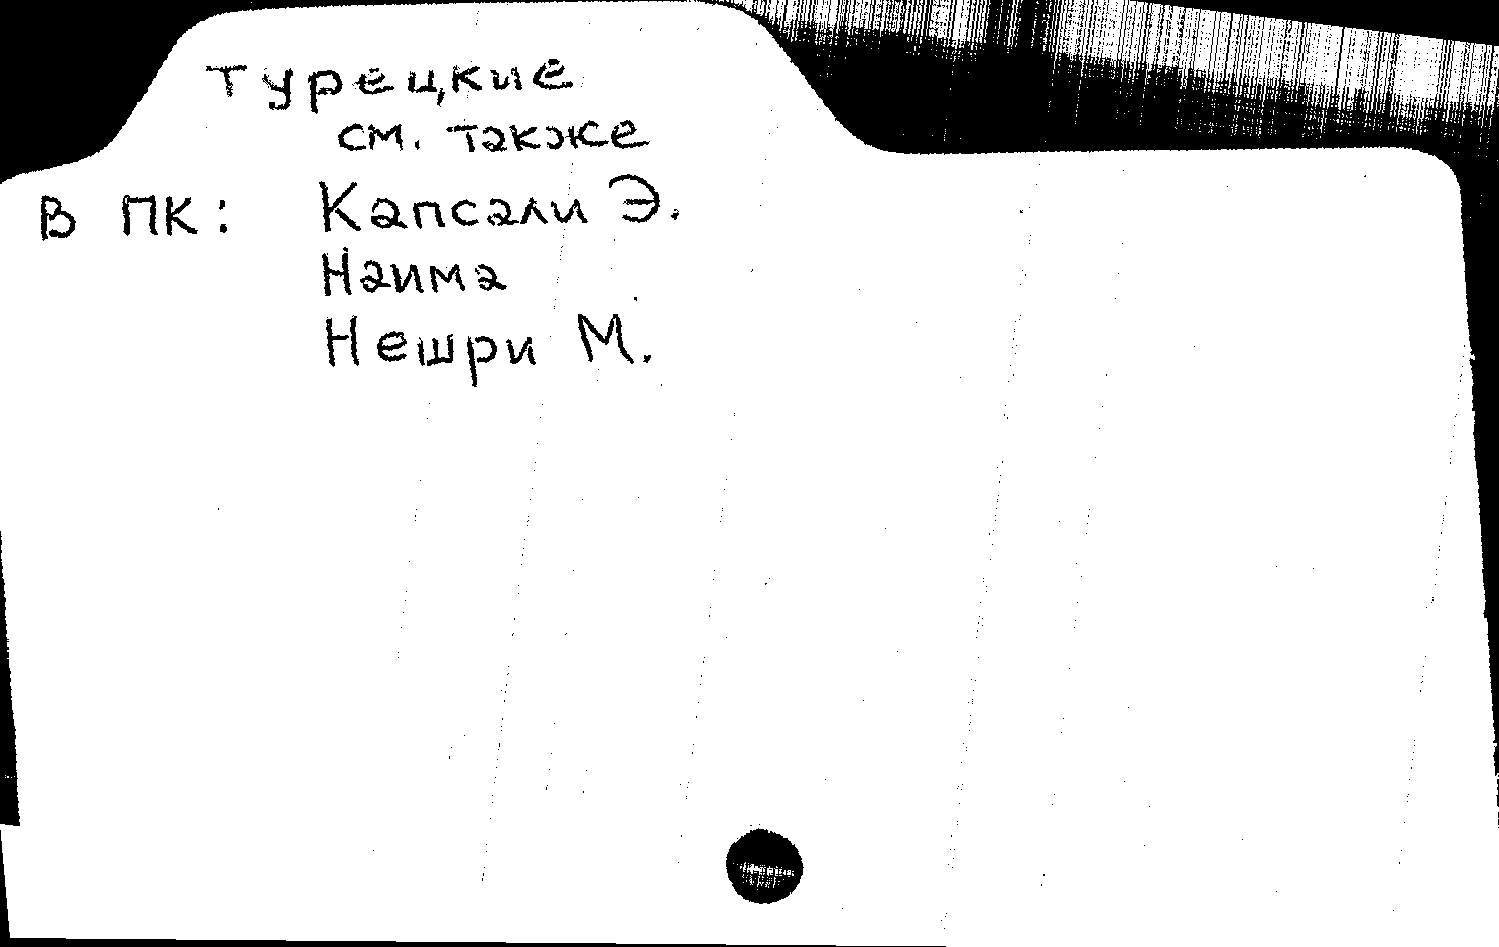 Турецкие
см. также
В ПК: Капсали Э.
Наима
Нешри М.